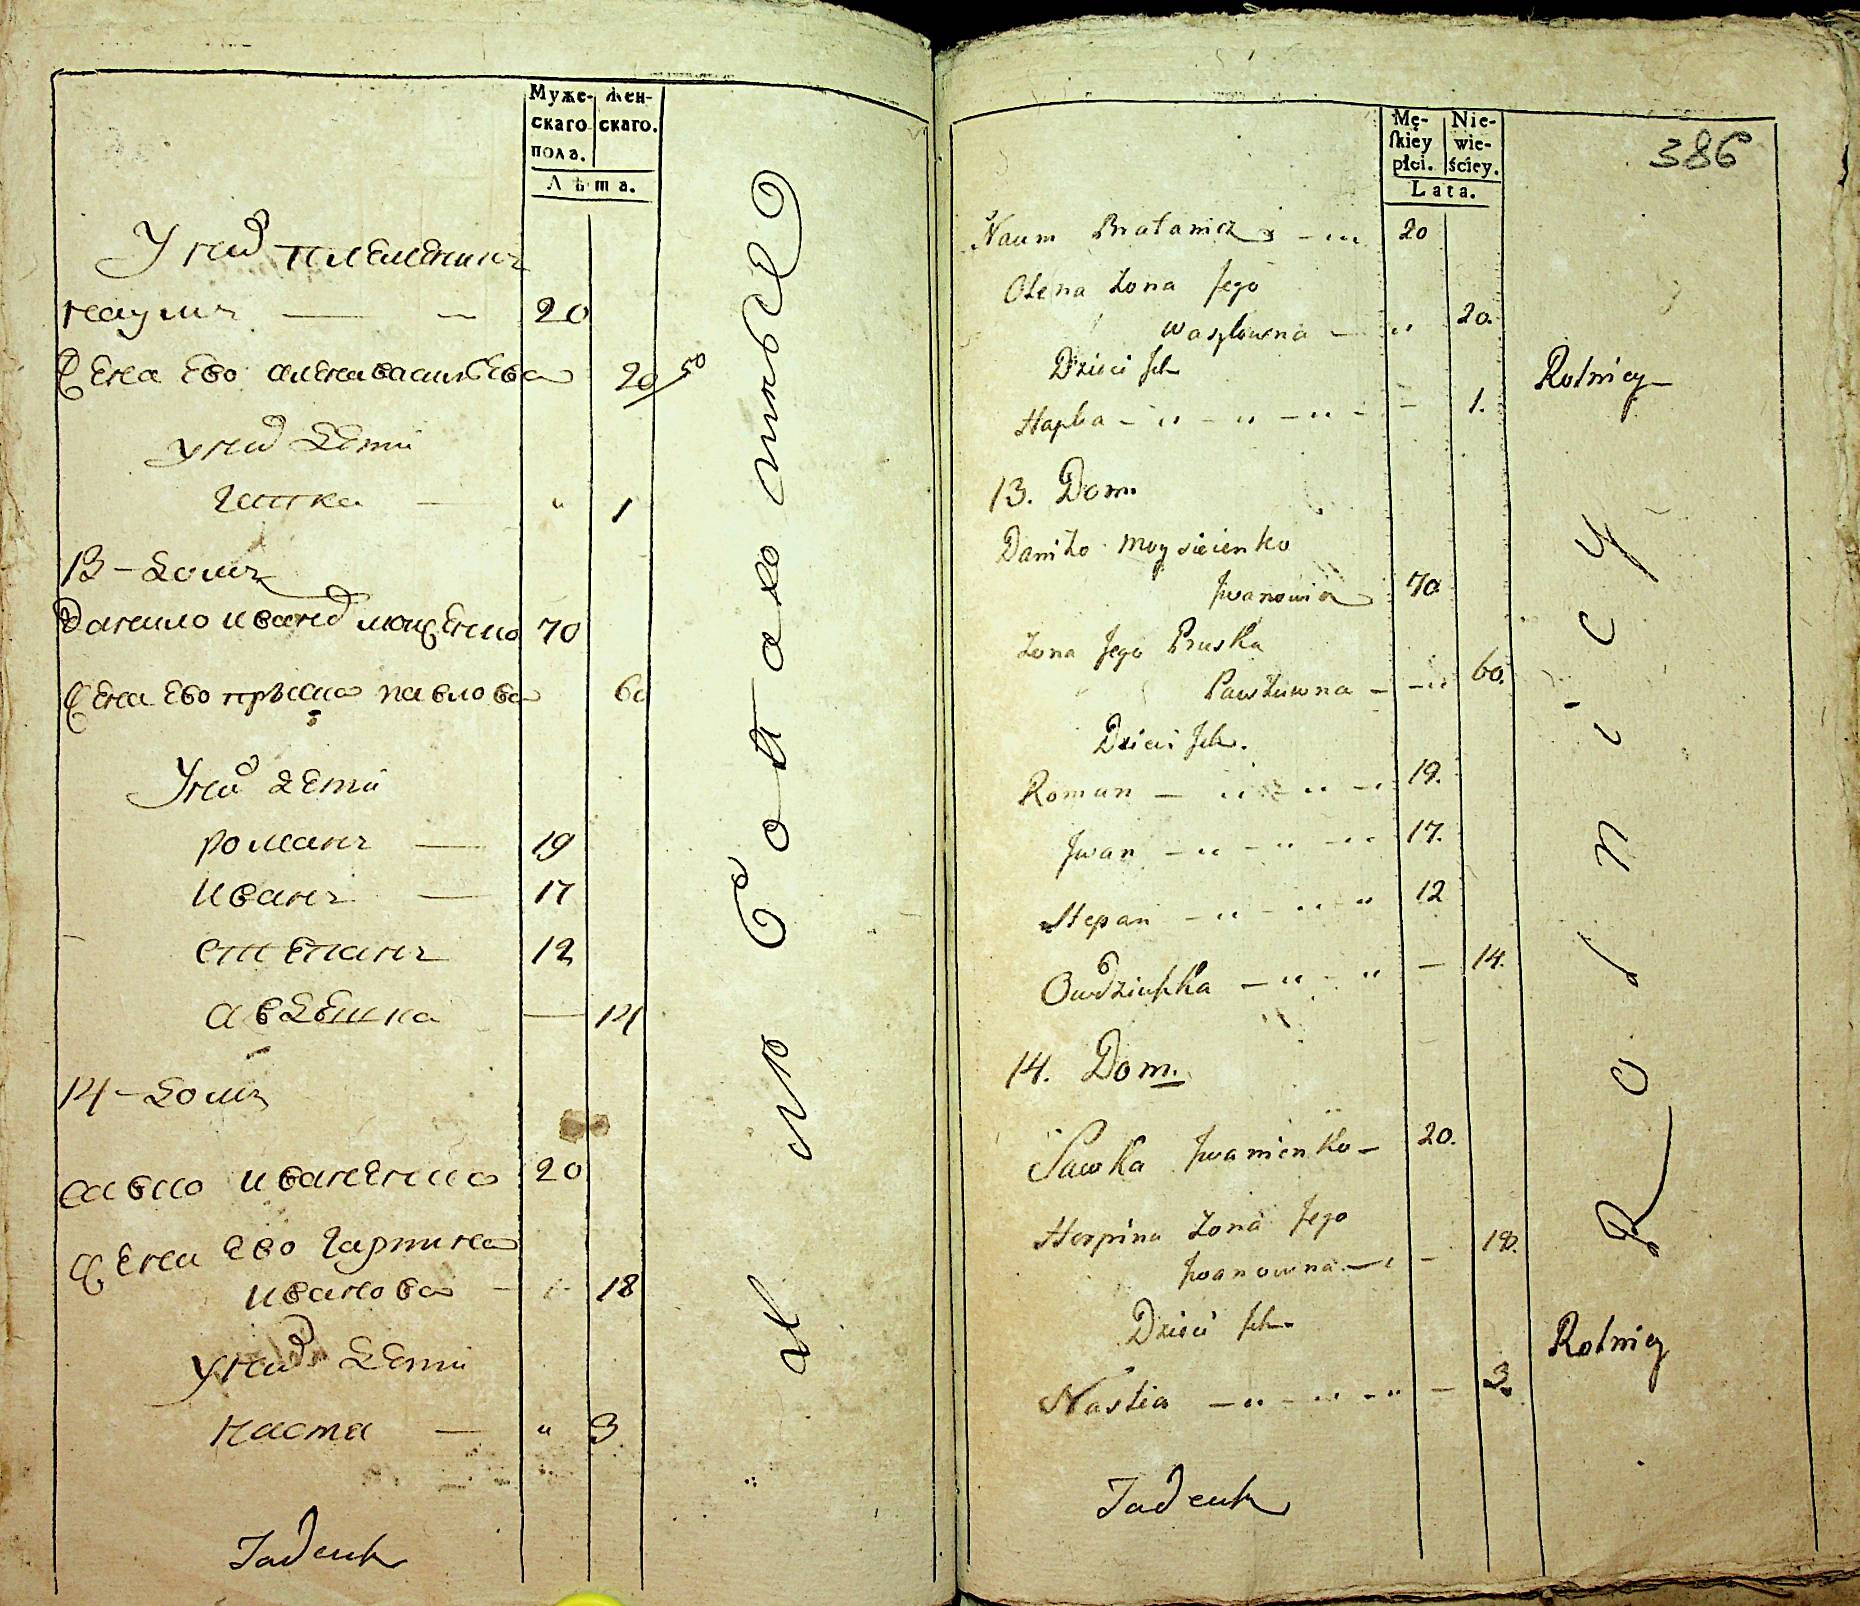 Муже-
скаго
пола.
Жен-
скаго.
Лѣта.
У них племенникъ
наумъ 20
жена ево алена васильева 20
у них дети
гапка " 1
13 - домъ
данило иванов 70
жена ево прѣска павлова 60
У них дети
романъ 19
иванъ 17
степанъ 12
авдешка 14
14 - домъ
савко иваненко 20
жена ево гарпина
иванова 18
у них дети
настя " 3
Tadeuſz
Mę-
ſkiey
płci.
Nie-
wie-
ściey.
Lata.
386
Naum Bratanicz 20
Olena żona Jego
Wasylowna 20.
Dzieci Jch
Hapka 1.
Rolnicy
13. Dom.
Daniło Moysieienko
Jwanowicz 70
Żona Jego Pruska
Pawłowna 60.
Dzieci Jch.
Roman 19.
Jwan 17.
Stepan 12
Owdziuszka 14.
14. Dom.
Sawka Jwanienko 20.
Horpina Żona Jego
Jwanowna 18.
Dzieci Jch
Nastia 3.
Rolnicy
Rolnicy